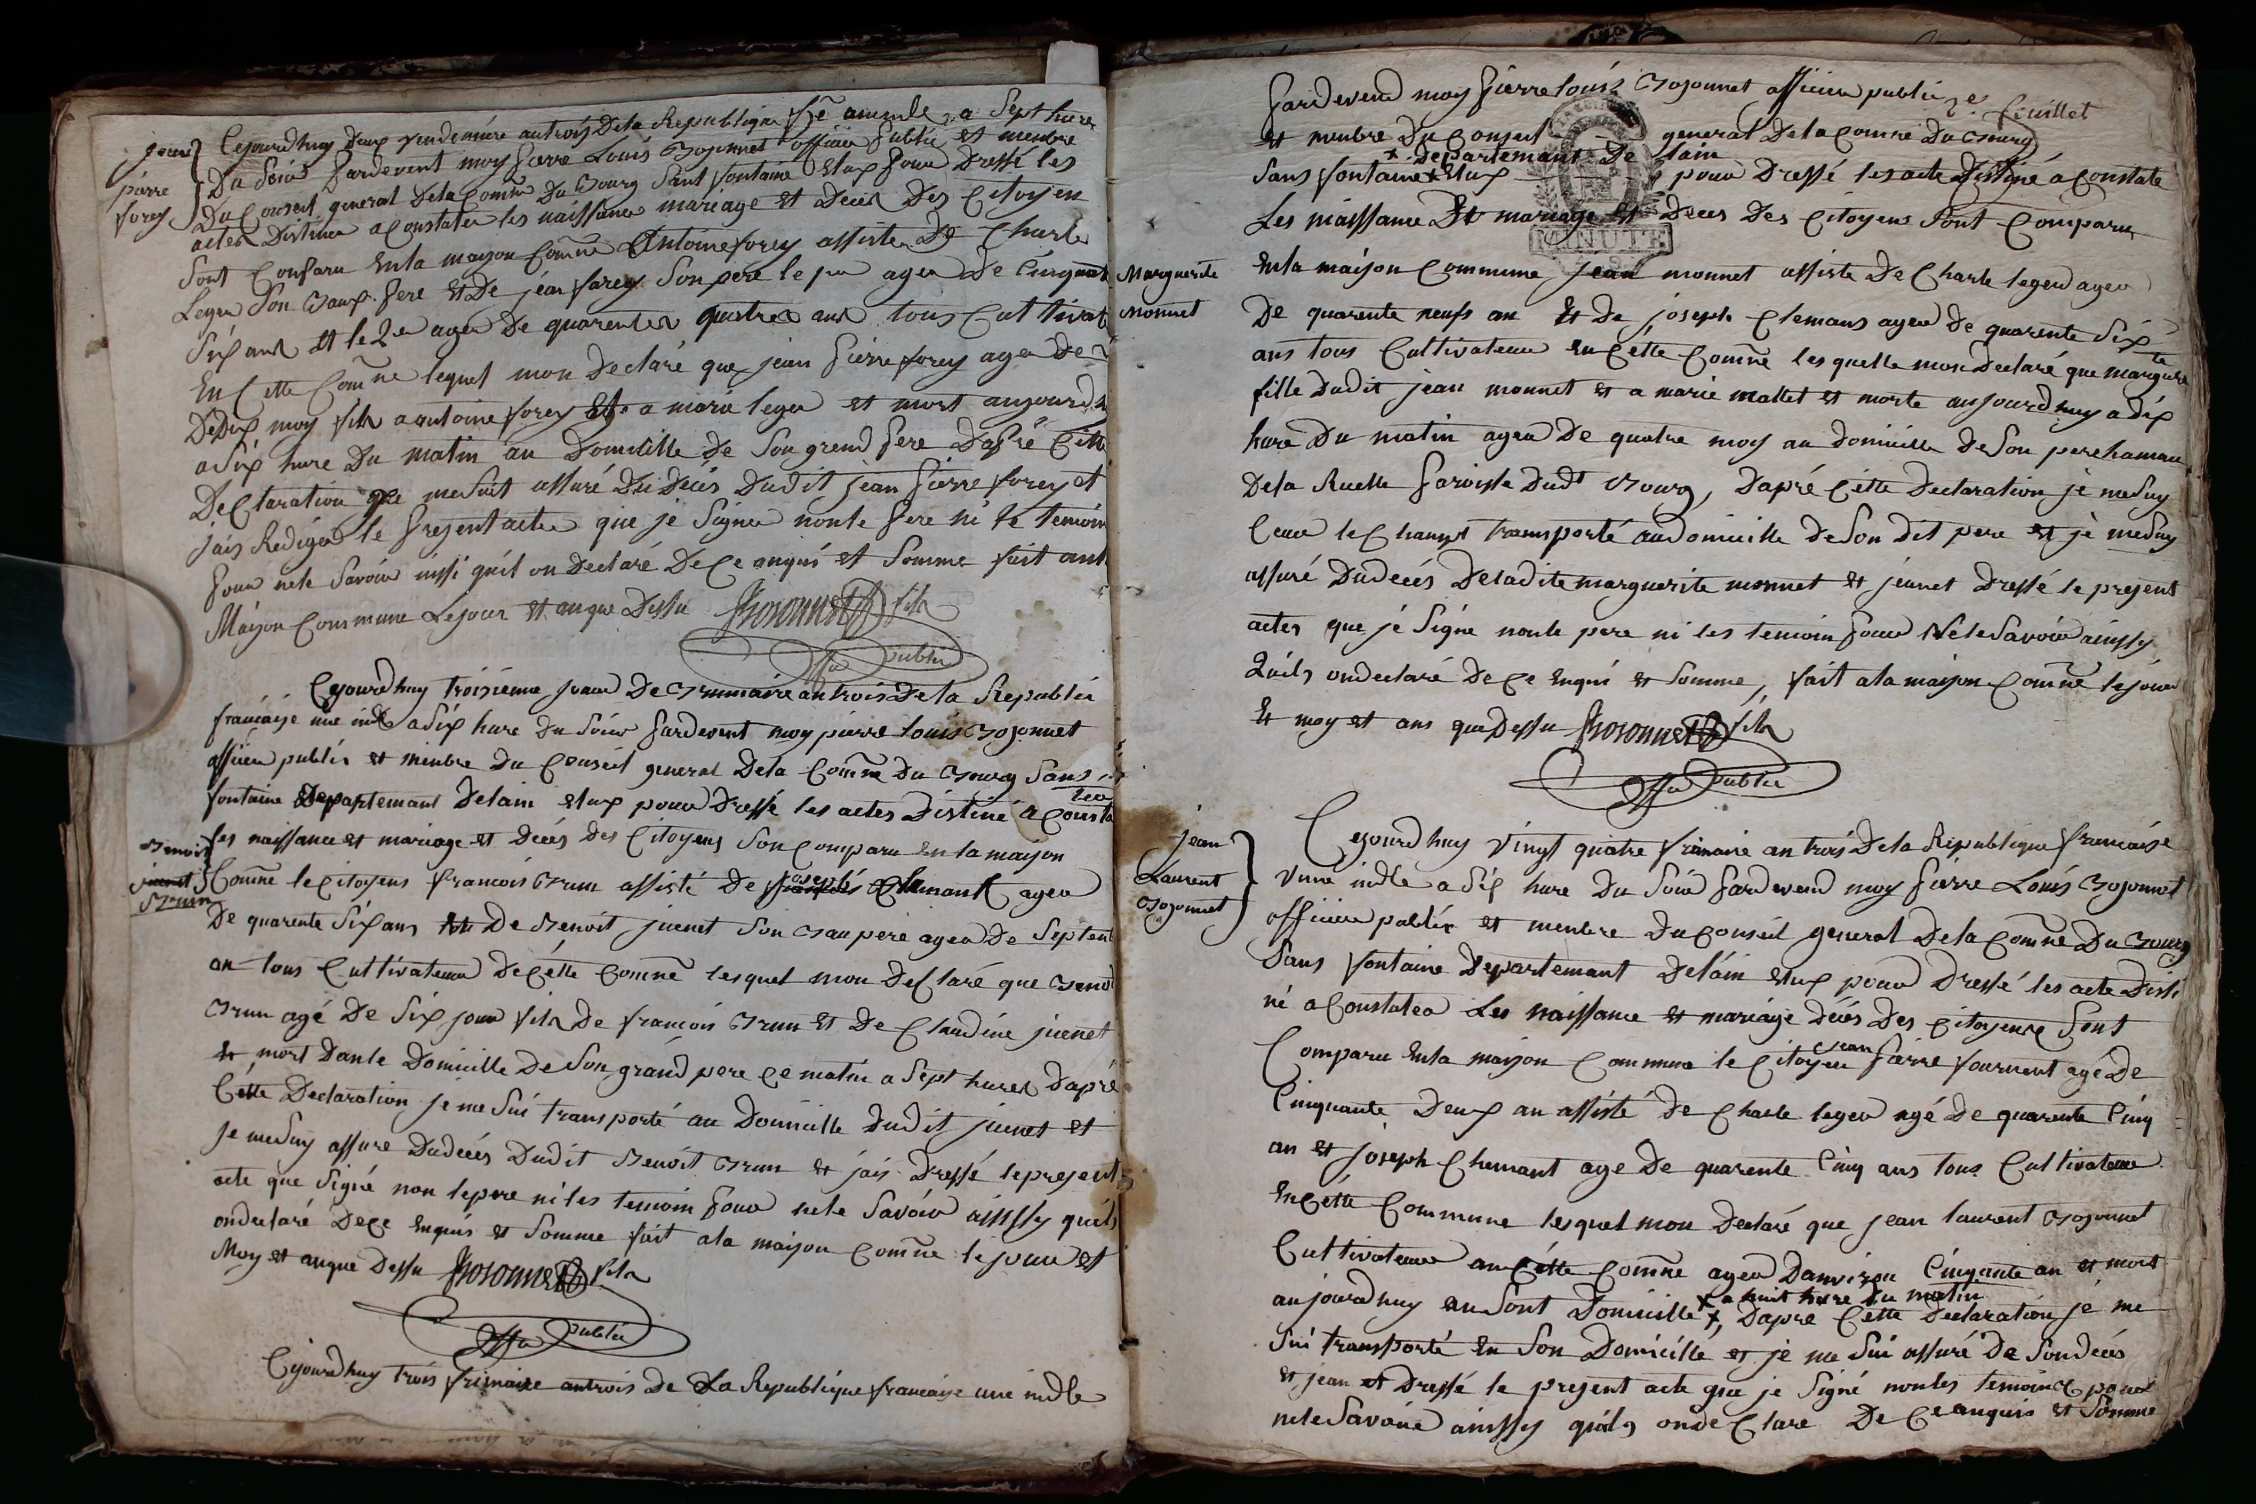 jean
pierre
forey
Cejourdhuy Deux vendemiere antrois Dela Republique a Sept hure
Du Soir pardevent moy pierre Louis Bozonnet officier public et menbre
Du Conseil general Dela Comne Du Bourg Sant fontaine Elux pour Dressé les
actes Distiner a Constater les naissance mariage et decer Des Citoyen
Sont Conparu En la mayson Comne Antoine forey assister De Charle
Leger Son Baux pere et De jean forey Son pere le pr ager De Cinquante
Six ans et le 2e ager De quarenter quatre ans tous Cultivat
En Cette Comne lequel mon Declaré que jean pierre forey ager De
Dedix moy fils a antoine forey et a marie leger et mort aujourdh
a Six hure Du matin au Domicille De Son grend pere Dapré Cette
Declaration je me suit assuré Du Décés Dudit jean pierre forey et
jais Rediger le present acter que je Signer nonle pere ni le temoin
pour nele Savoir insi quil on Declaré De Ce anquis et Somme fait ant
Maison Commune Lejour et anque Dessu Bozonnet fils
offer public
Cejourdhuy troisieme jour De Brumaire antrois Dela Republi
francaise une indle a Six hure du Soir pardevent moy pierre louis Bozonnet
officier public et menbre Du Conseil general Dela Comne Du Bourg Sans
fontaine Departemant Delain elux pour Dressé les actes Distiné a Consta
ter
les naissance et mariage et Décés Des Citoyens Son Comparu En la maison
Benoit
juenet
Brun
Comne le Citoyens francois Brun assisté De joseph Clemant ager
De quarente Six ans et De Benoit juenet Son Baupere ager De Septent
an tous Cultivateur De Cétte Comne lesquel mon Declaré que Benoi
Brun agé De Six jour fils De francois Brun Et De Claudine juenet
et mort Dan le Domicille De Son grand pere Ce matin a Sept hures Dapré
Cette Declaration je me Sui transporté au Domicille Dudit juenet et
Je me Suy assure Dudécés Dudit Benoit Brun et jais Dressé lepresent
acte que Signé non lepere ni les temoin pour nele Savoir ainssy quils
ondeclaré Dece Enquis et Somme fait ala maison Comne le jour et
Moy et anque Dessu Bozonnet fils
offer public
Cejourdhuy trois frimaire antrois De La Republique francaise une indle
2e feuillet
pardevend moy pierre louis Bozonnet officier public
et menbre Du Conseil general Dela Comne Du Bourg
x Departemant De lain
Sans fontaine x Elux pour Dressé les acte Distiné a Constaté
Les naissance Et mariage et Deces Des Citoyens Sont Comparu
MINUTE
Marguerite
Monnet
En la maison Commune jean monnet assiste De Charle leger ager
De quarente neufs an Et De joseph Clemans ager de quarente Six
ans tous Cultivateur en Cétte Comne les quelle mon Declaré que margueri
te
fille Dudit jean monnet et a marie mallet et morte aujourdhuy a dix
hure Du matin ager De quatre moy au Domicille De Son pere hamau
Dela Ruelle paroisse Dudt Bourg, Dapré Cétte Declaration je me Suy
Ceur le Champt transporté audomicille De Son dit pere et je me Suy
assuré Dudecés Deladite marguerite monnet et jeanet Dressé le present
actes que jé Signé nonle pere ni les temoin pour Ne le Savoir ainssy
Quils ondeclaré De Ce Enqui et Somme, fait ala maison Comne le jour
Et moy et ans que Dessu Bozonnet fils
offer public
jean
Laurent
Bozonnet
Cejourdhuy vingt quatre frimaire an trois Dela Republique francaise
Vune indle a Six hure Du Soir pardevend moy pierre Louis Bozonnet
officier public et menbre Du Conseil general Dela Comne Du Bourg
Sans fontaine Departemant Delain elux pour Dressé les acte Disti
né a Constater Les naissance et mariage Décés Des Citoyens Sont
Comparu En la maison Commune le Citoyen jean pierre fournent agé De
Cinquante Deux an assisté De Charle leger agé De quarente Cinq
an et joseph Clemant age De quarente Cinq ans tous Cultivateur
En Cétte Commune lesquel mon Declaré que jean laurent Bozonnet
Cultivateur an Cétte Comne ager Danviron Cinqante an et mort
a huit hure Du matin
aujourdhuy en Sont Domicille x, Dapre Cette Declaration je me
Sui transporté En Son Domicille et je me Sui assuré De Son decés
et jean et Dressé le present acte que je Signé nonles temoins pour
nele Savoire ainssy quils onde Clare De Ce anquis et Somme